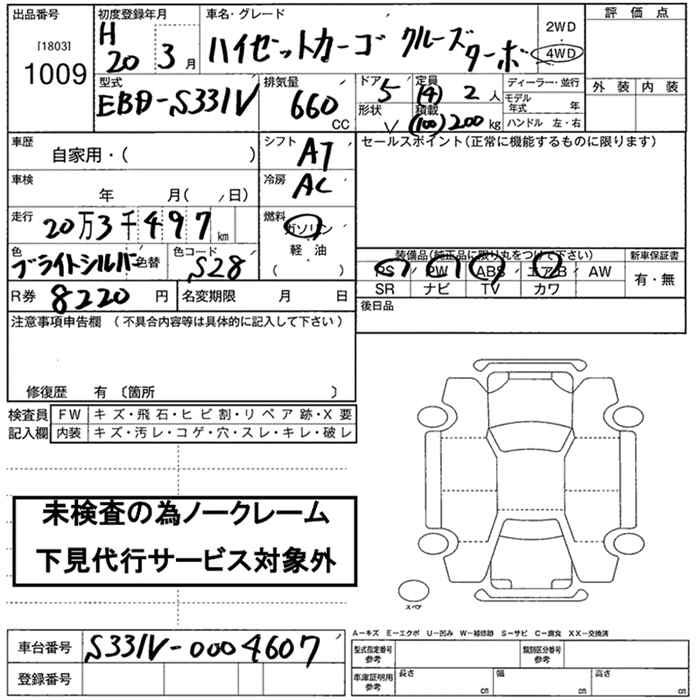 出品番号 初度登録年月 車名・グレード 2WD 評価点
[1803] H ハイゼットカーゴ クルーズターボ ・
1009 20 3月 4WD
型式 排気量 ドア 5 定員 (4) 2人 ディーラー・並行 外装 内装
EBD-S331V 660 CC 形状 V 積載 (100) 200 kg モデル年式 年
ハンドル 左・右
車歴 シフト AT セールスポイント(正常に機能するものに限ります)
自家用・( )
車検 冷房 AC
年 月( / 日)
走行 20万3千497km 燃料 ガソリン
色 ブライトシルバー 色替 色コード S28 軽・油 装備品(純正品に限り丸をつけて下さい) 新車保証書
( ) PS PW ABS エアB AW 有・無
R券 8220円 名変期限 月 日 SR ナビ TV カワ
後日品
注意事項申告欄 (不具合内容等は具体的に記入して下さい)
修復歴 有 〔箇所 〕
検査員 FW キズ・飛石・ヒビ割・リペア跡・X要
記入欄 内装 キズ・汚レ・コゲ・穴・スレ・キレ・破レ
未検査の為ノークレーム
下見代行サービス対象外
スペア
A−キズ E−エクボ U−凹み W−補修跡 S−サビ C−腐食 XX−交換済
車台番号 S331V-0004607 型式指定番号 参考 類別区分番号 参考
登録番号 車庫証明用 参考 長さ cm 幅 cm 高さ cm